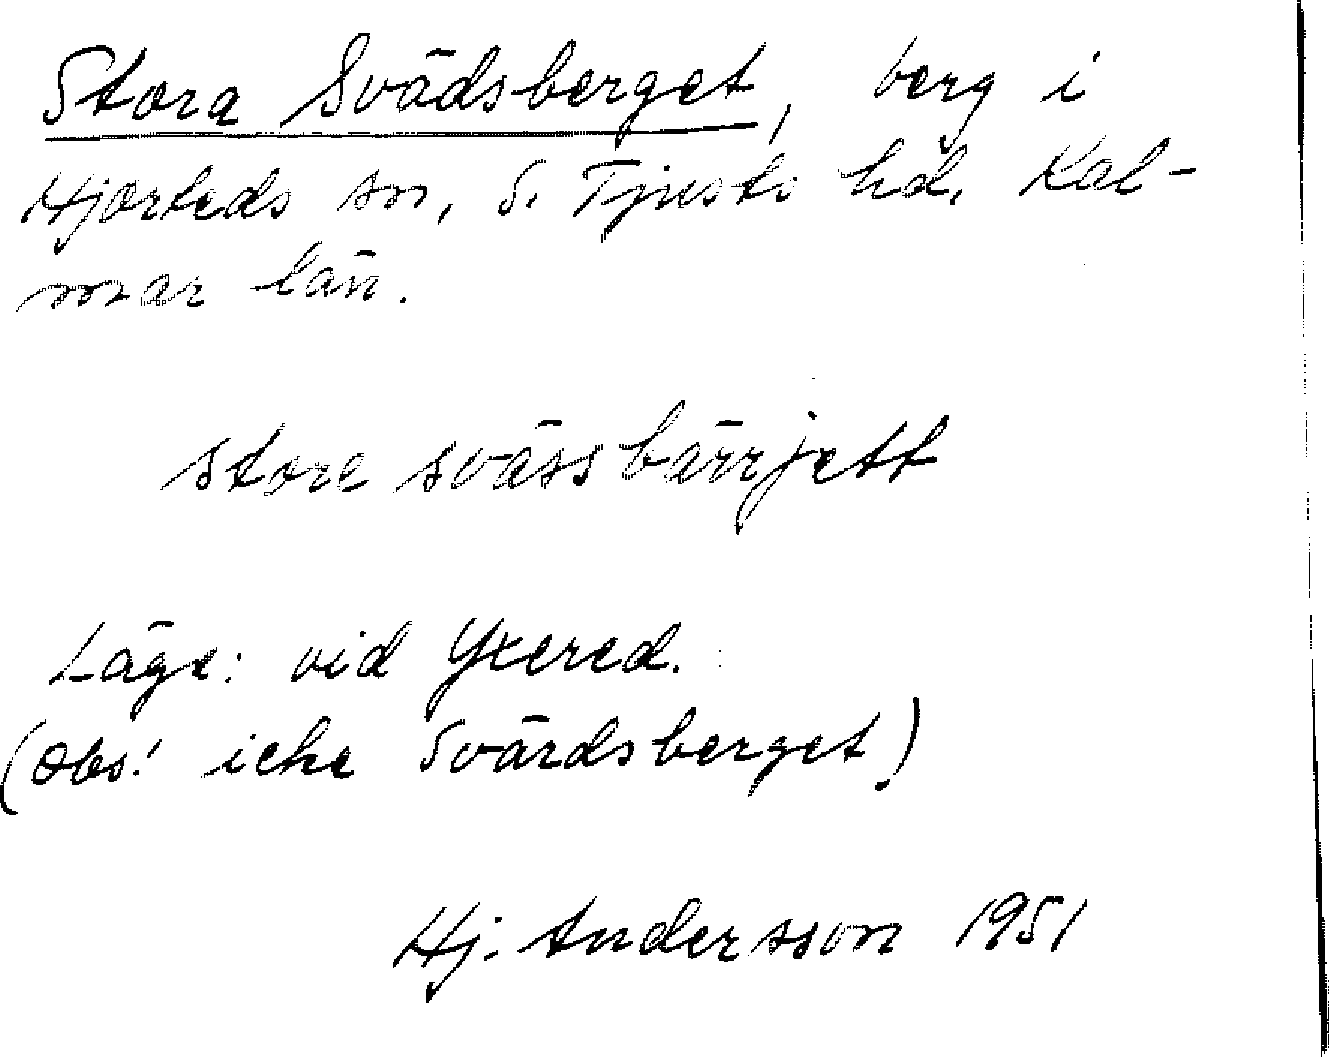 Stora Svädsberget, berg i
Hjorteds sn, S. Tjusts hd, Kal-
mar län.
store svässbärrjett
Läge: vid Yxered.
(Obs! icke Svärdsberget.)
Hj. Andersson 1951